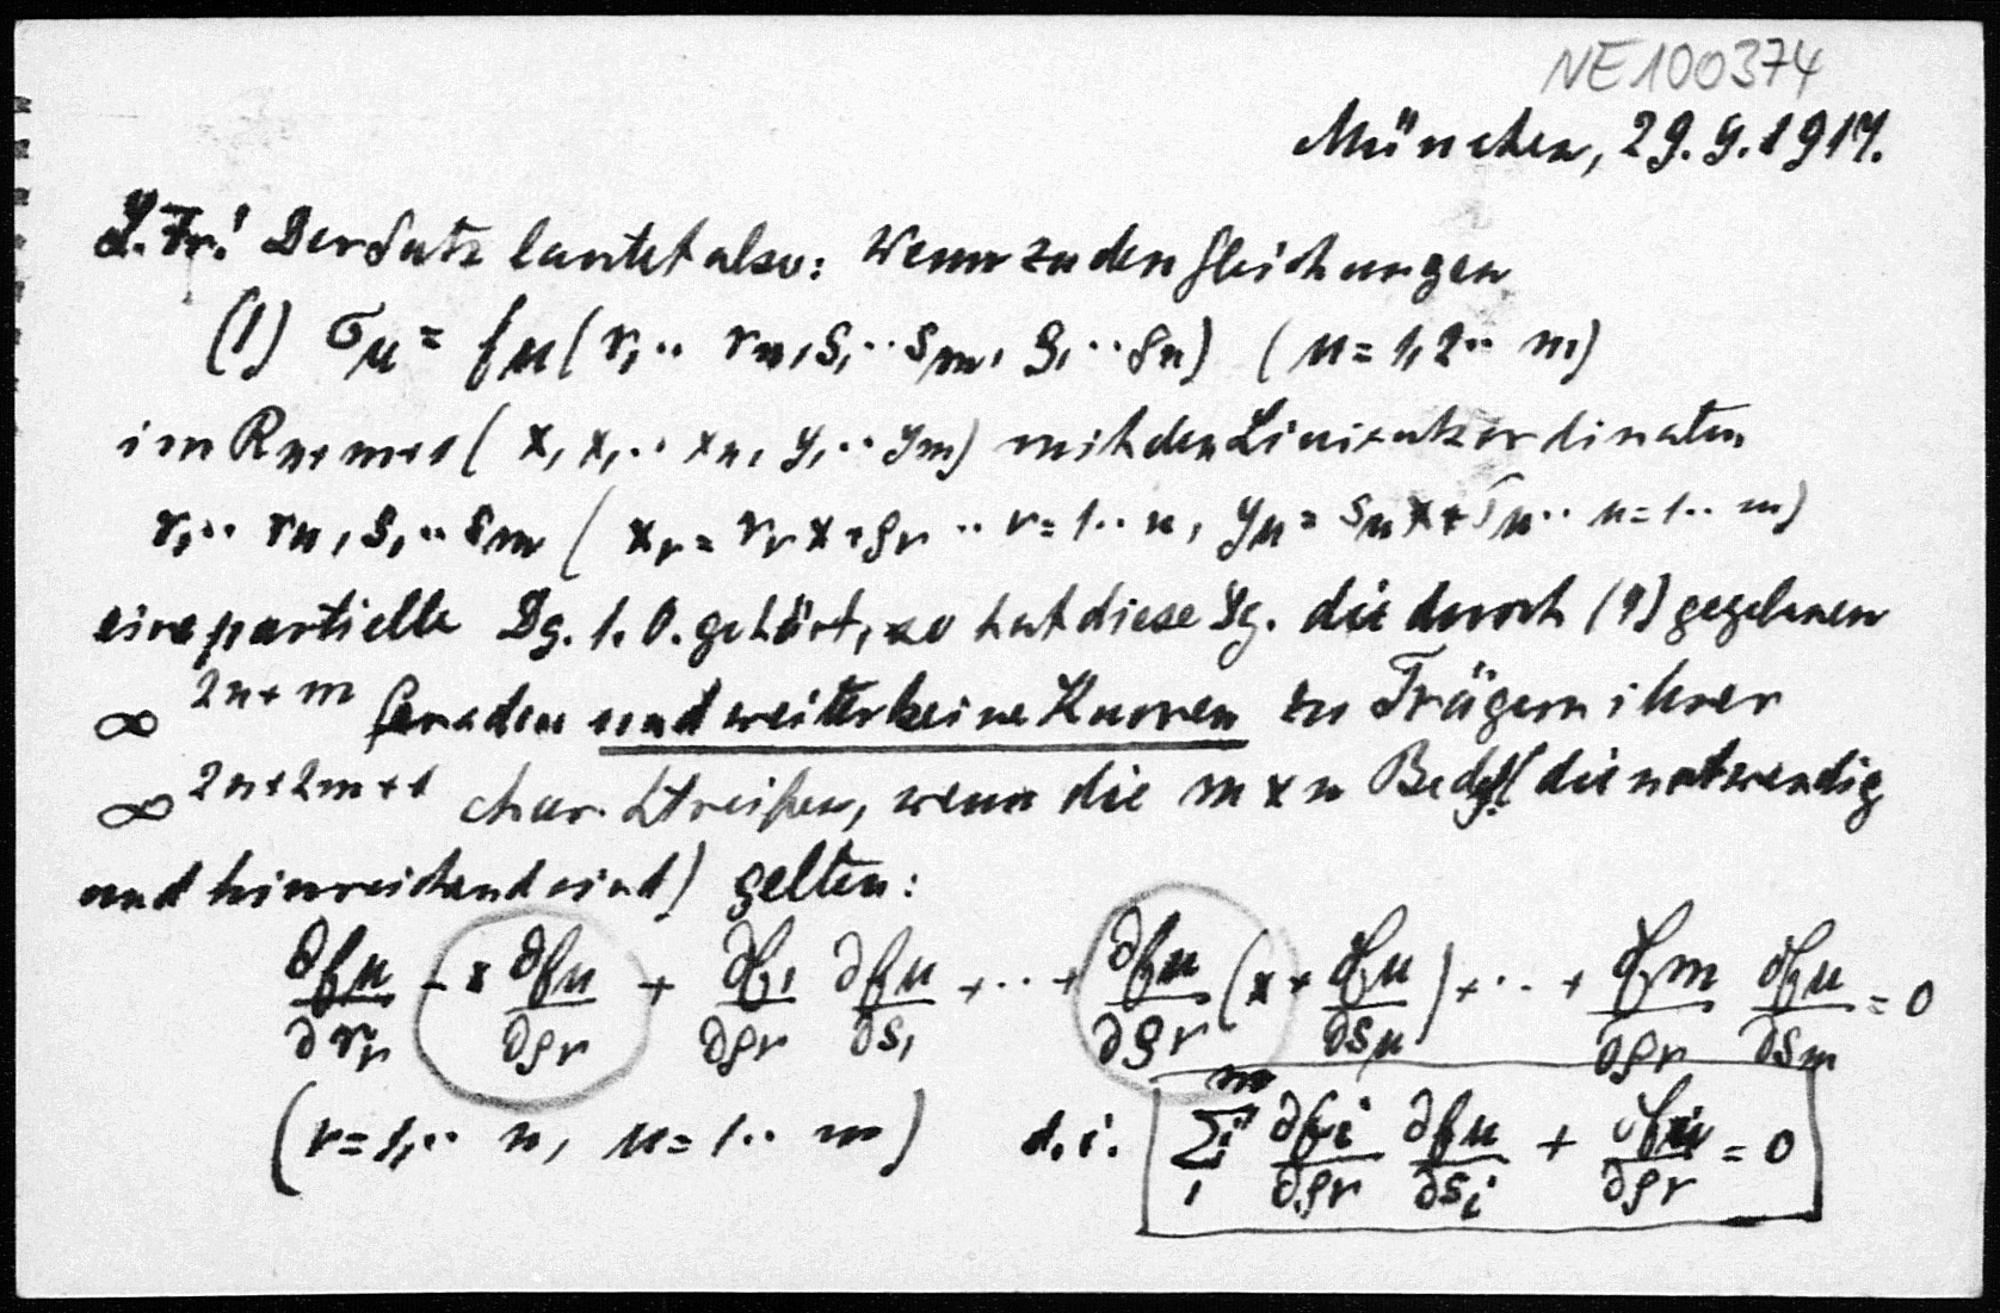 NE100374
München, 29.9.1917.
L. Fr.! Der Satz lautet also: Wenn zu den Gleichungen
(1) σμ = fμ(r₁·· rn, s₁·· sm, ρ₁·· ρn) (μ = 1, 2·· m)
im Rn+m+1 ( x, x₁·· xn, y₁·· ym) mit den Linienkoordinaten
r₁·· rn, s₁·· sm ( xν = rν x + ρν ·· ν = 1·· n, yμ = sμ x + σμ ·· μ = 1·· m)
eine partielle Dg. 1. O. gehört, so hat diese Dg. die durch (1) gegebenen
∞^2n+m Geraden und weiter keine Kurven zu Trägern ihrer
∞^2n+2m+1 char. Streifen, wenn die m x n Bedg. (die notwendig
und hinreichend sind) gelten:
∂fμ/∂rν - x ∂fμ/∂ρν + ∂f₁/∂ρν ∂fμ/∂s₁ + ·· + ∂fμ/∂ρν (x + ∂fμ/∂sμ) + ·· + ∂fm/∂ρν ∂fμ/∂sm = 0
(ν = 1,·· n, μ = 1·· m) d. i. m Σi 1 ∂fi/∂ρν ∂fμ/∂si + ∂fμ/∂ρν = 0